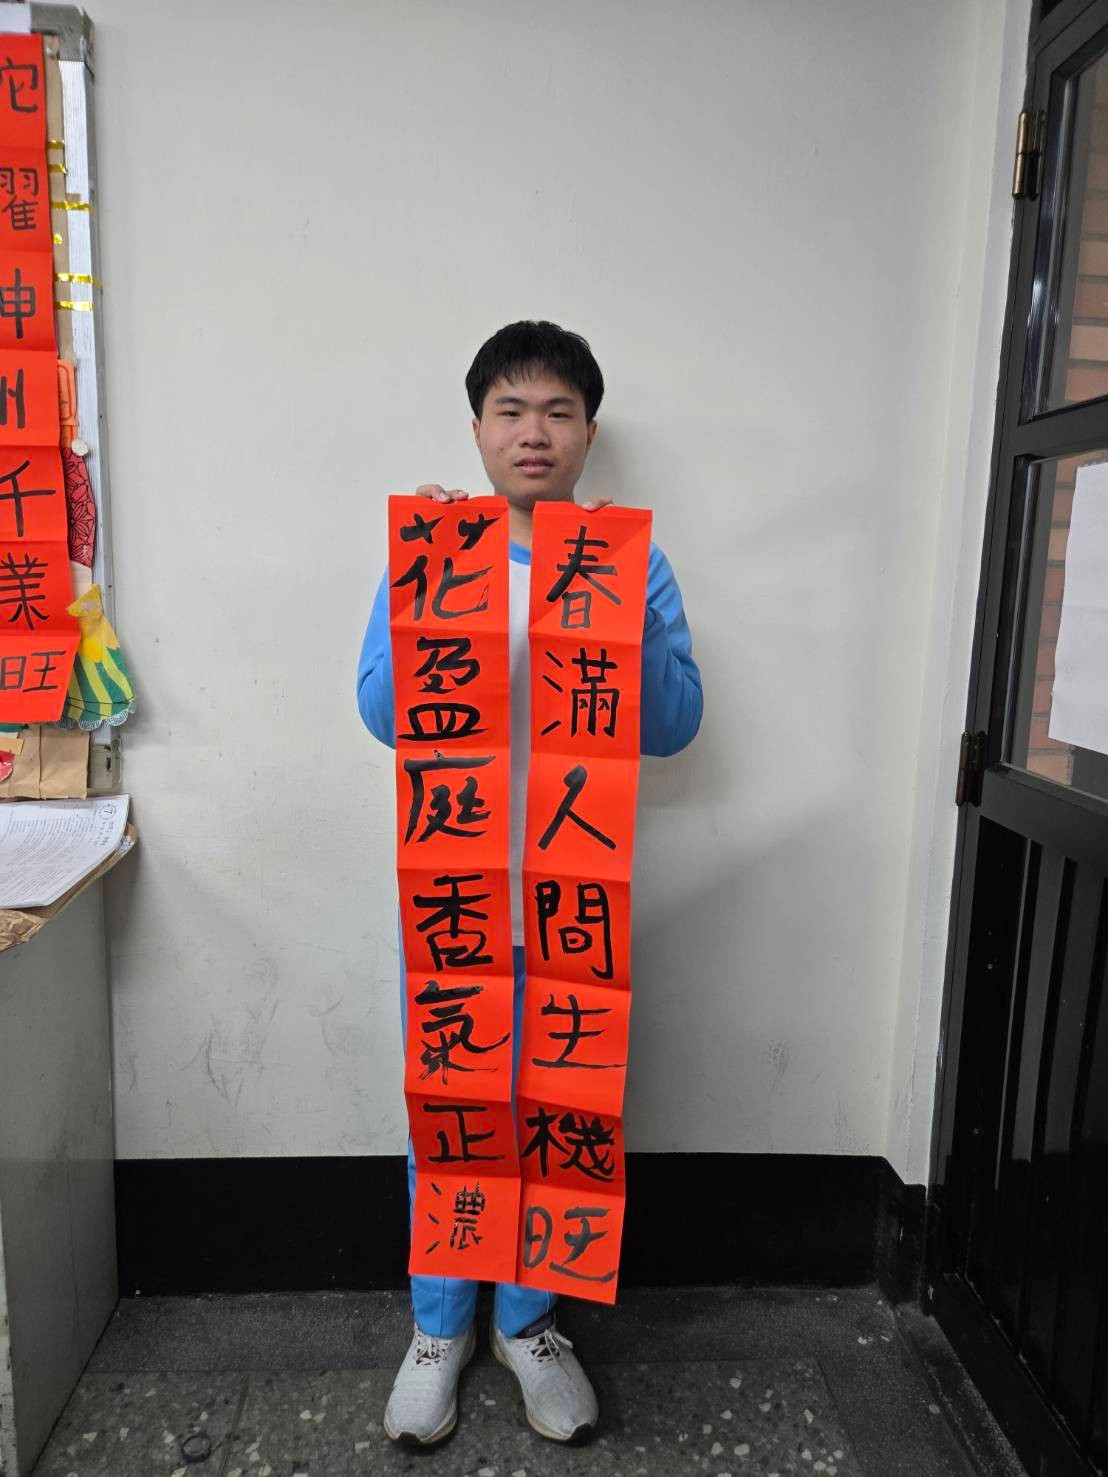 春滿人間生機旺
花盈庭香氣正濃
耀神州千業旺